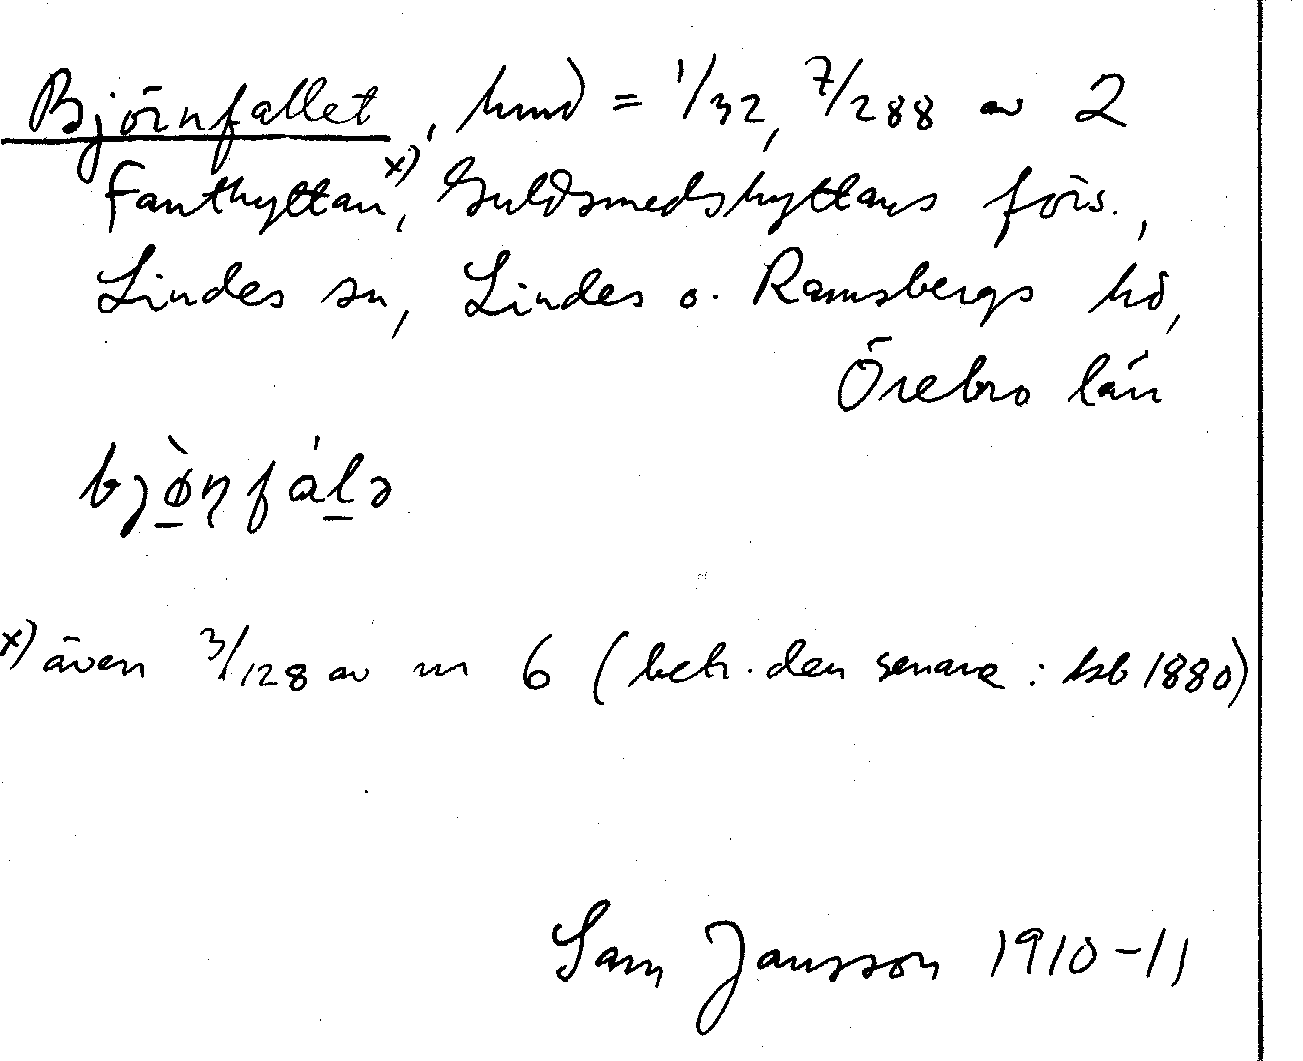 Björnfallet, hmd = 1/32, 7/288 av 2
Fanthyttan x), Guldsmedshyttans förs.,
Lindes sn, Lindes o. Ramsbergs hd,
Örebro län
bjø̀ṇfálə
x) även 3/128 av nr 6 (betr. den senare: hsb 1880)
Sam Jansson 1910-11